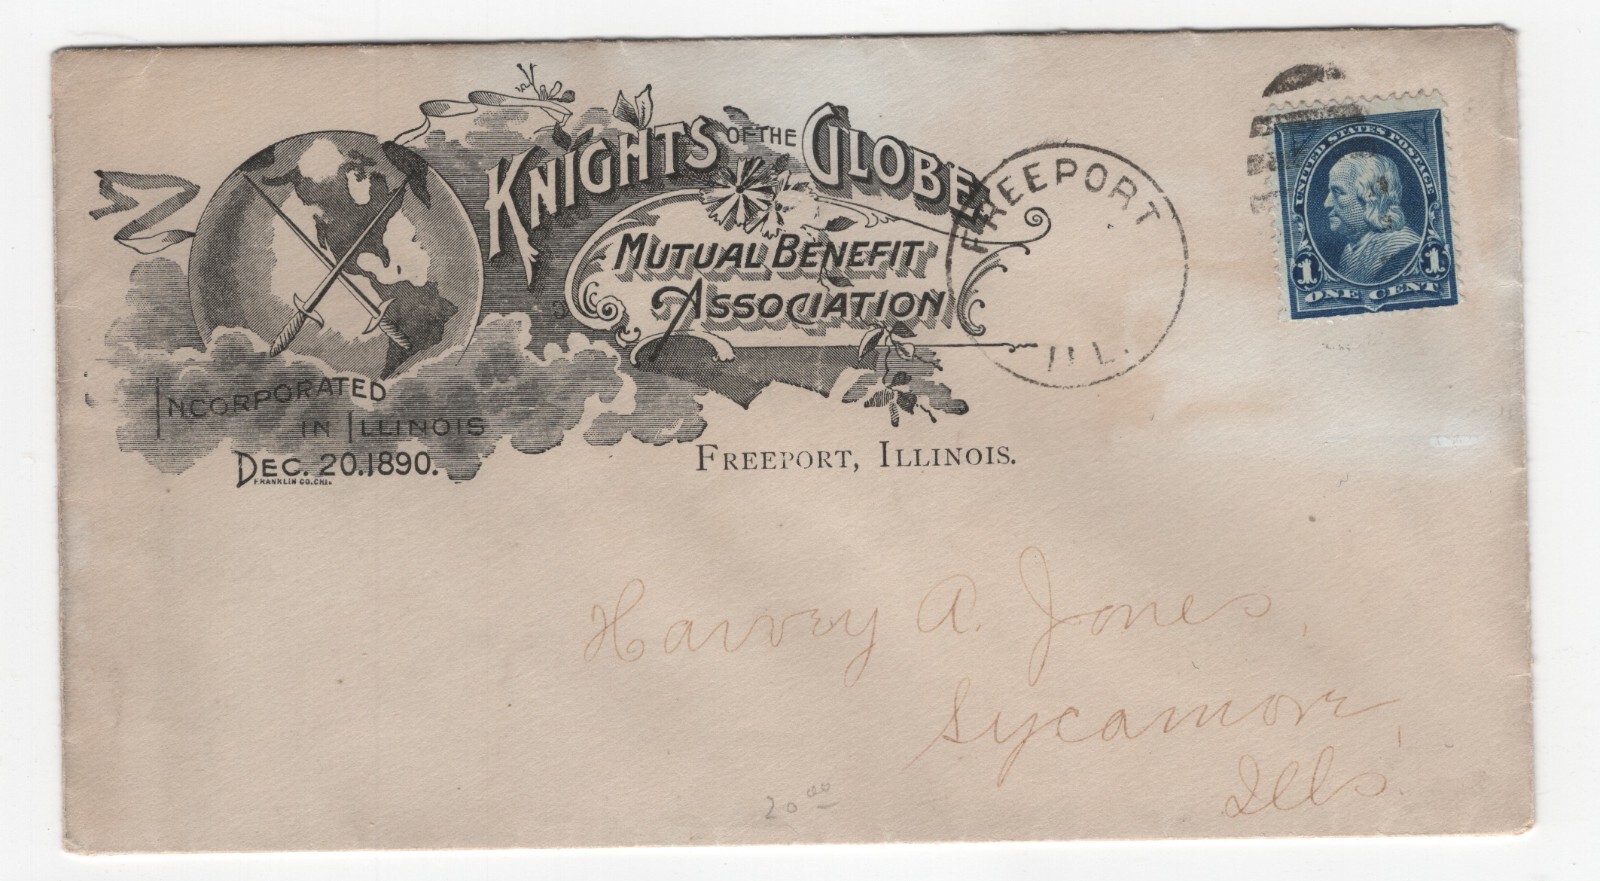 KNIGHTS OF THE GLOBE
MUTUAL BENEFIT
ASSOCIATION
INCORPORATED
IN ILLINOIS
DEC. 20.1890.
FRANKLIN CO. CHI.
FREEPORT, ILLINOIS.
FREEPORT
ILL.
UNITED STATES POSTAGE
1 1
ONE CENT
Harvey A. Jones,
Sycamore,
Ills.
20 00